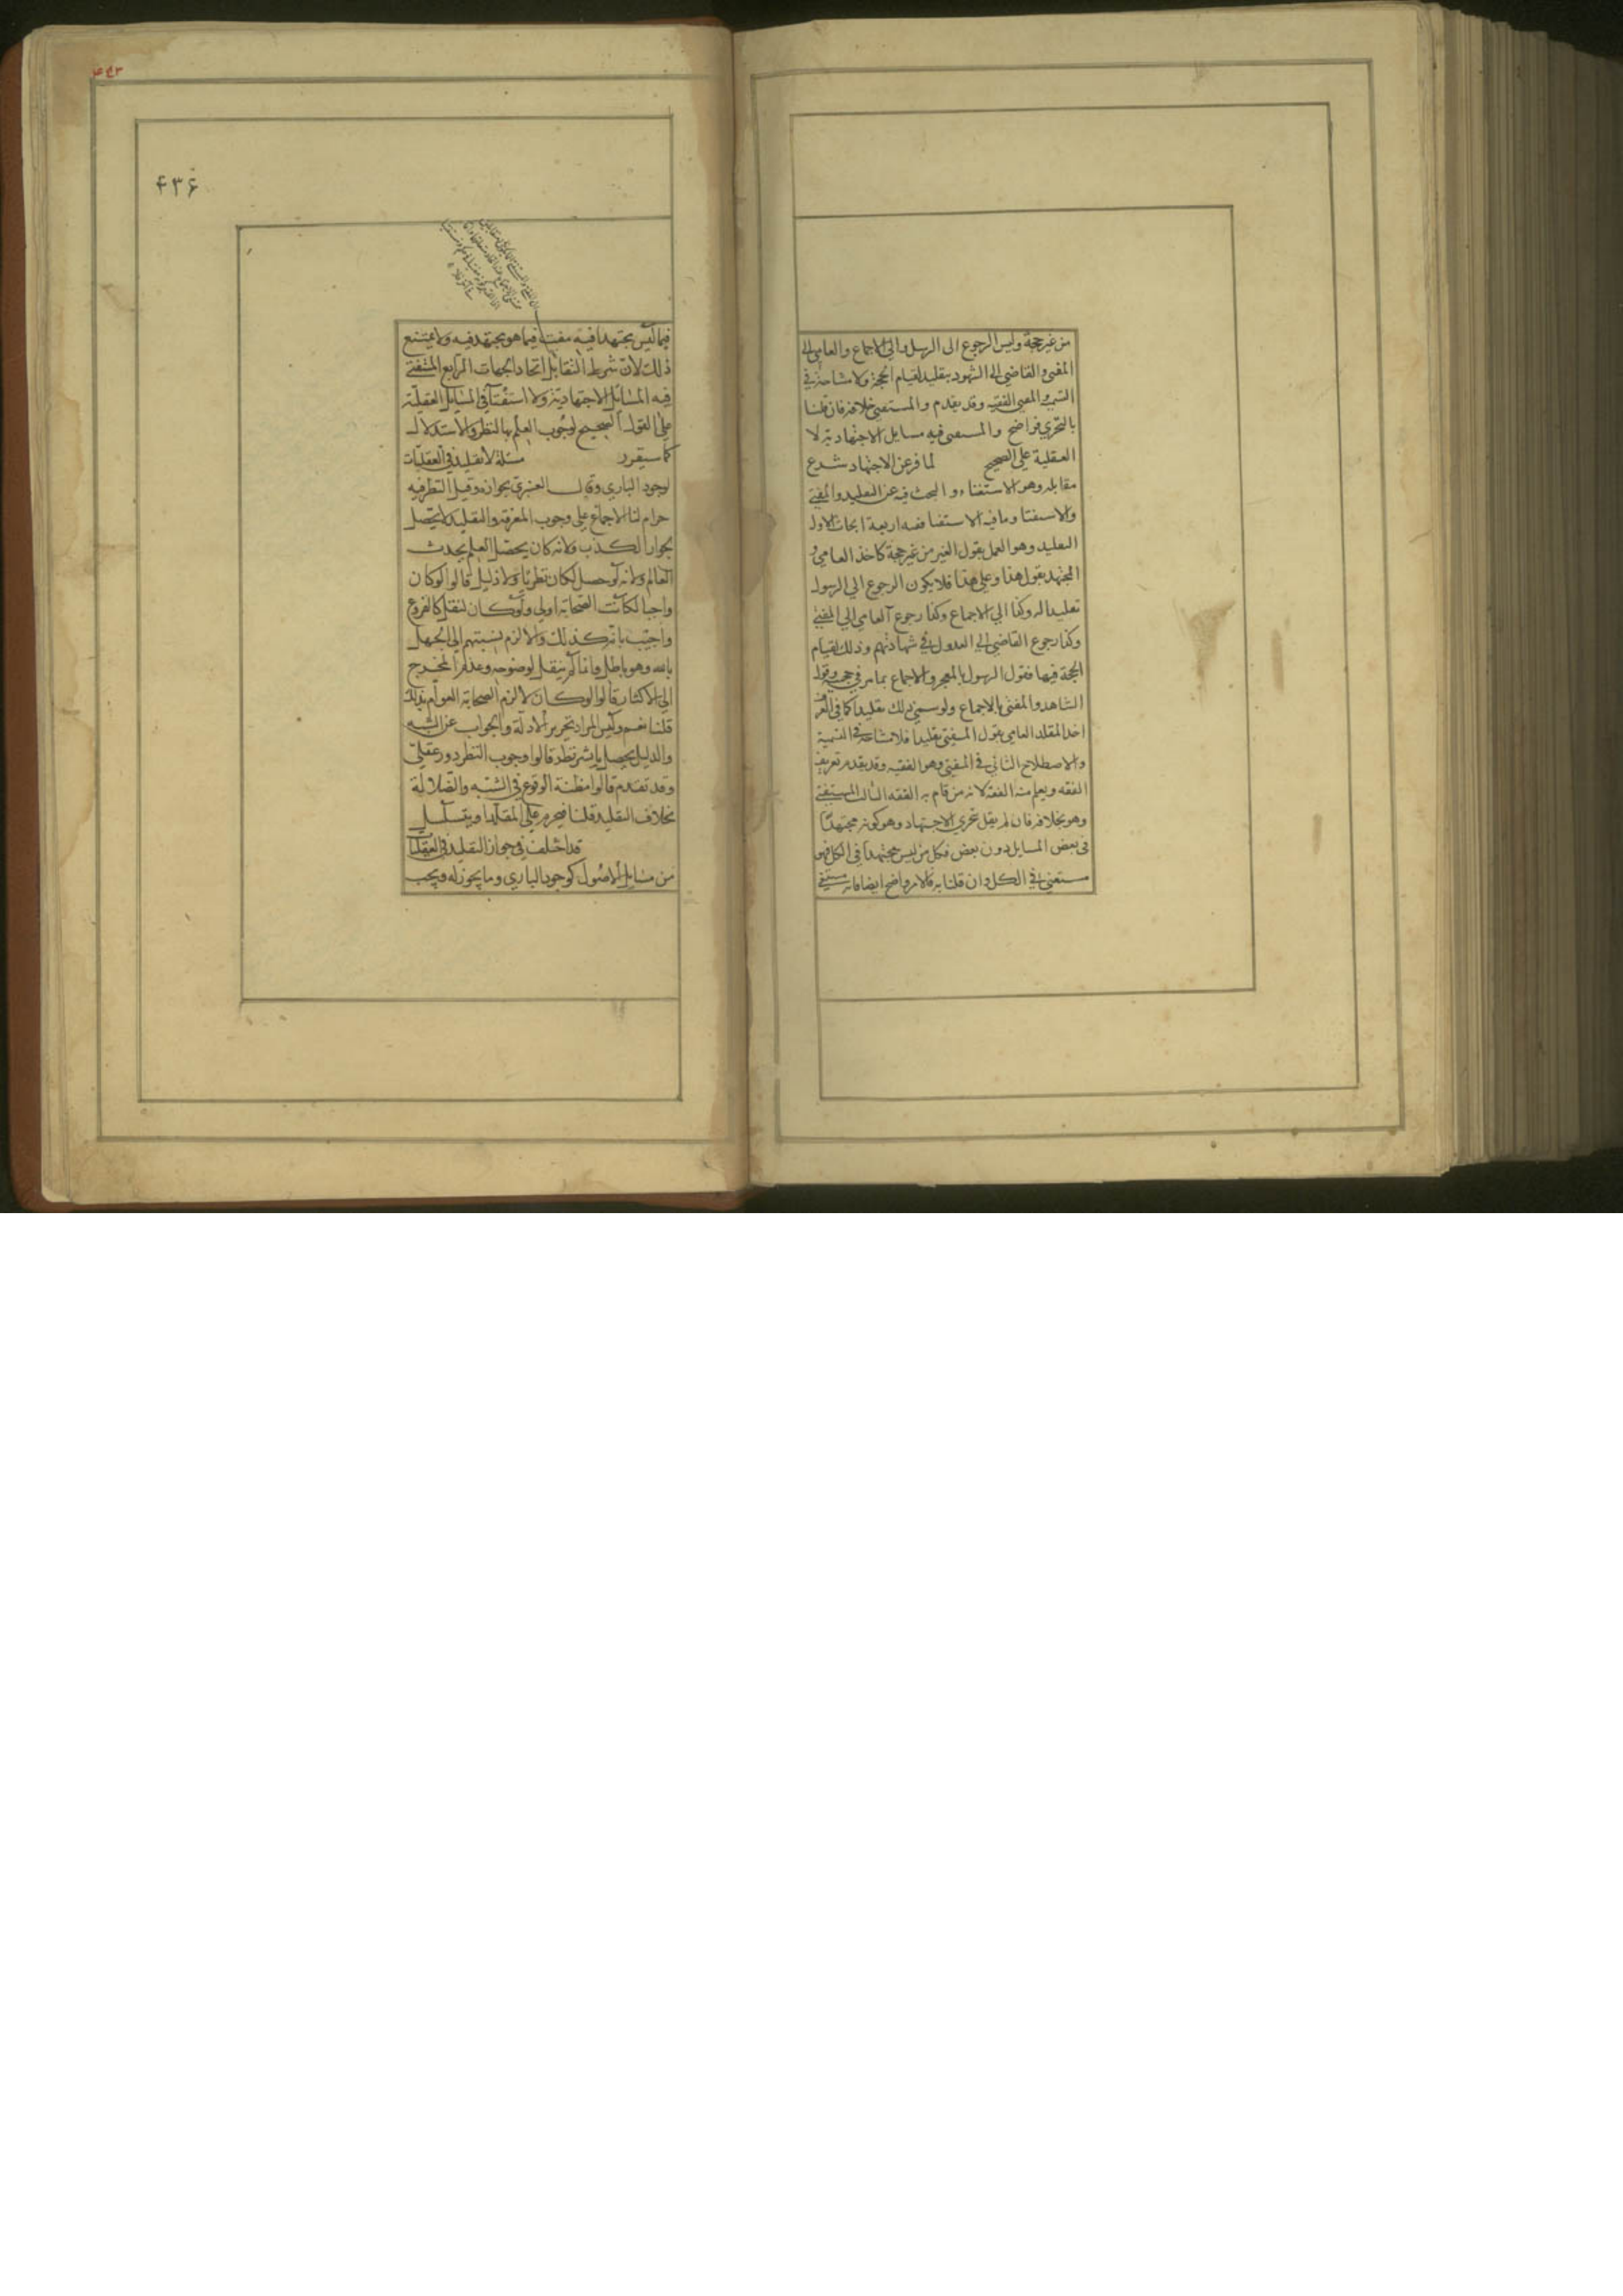 من غير حجة وليس الرجوع الى الرسول والى الاجماع والعامي الى
المفتي والقاضي الى الشهود بتقليد لقيام الحجة ولا مشاحة في
التسمية والمفتي الفقيه وقد تقدم والمستفتي خلافه فان قلنا
بالتجزي فواضح والمستفتى فيه مسايل الاجتهادية لا
العقلية على الصحيح لما فرغ عن الاجتهاد شرع
مقابله وهو الاستفتاء والبحث فيه عن التقليد والمفتي
والاستفتا وما فيه الاستفتا ففيه اربعة ابحاث الاول
التقليد وهو العمل بقول الغير من غير حجة كاخذ العامي و
المجتهد بقول هذا وعلى هذا فلا يكون الرجوع الي الرسول
تقليدا له وكذا الي الاجماع وكذا رجوع العامي الي المفتي
وكذا رجوع القاضي الي العدول في شهادتهم وذلك لقيام
الحجة فيها فقول الرسول بالمعجز والاجماع بما مر في حجيته وقول
الشاهد والمفتي بالاجماع ولو سمي ذلك تقليدا كما في العرف
اخذ المقلد العامي بقول المفتي تقليدا فلا مشاحة في التسمية
والاصطلاح الثاني في المفتي وهو الفقيه وقد تقدم تعريف
الفقه ويعلم منه الفقيه لانه من قام به الفقه الثالث المستفتي
وهو بخلافه فان لم يقل بتجزي الاجتهاد وهو كونه مجتهدا
في بعض المسايل دون بعض فكل من ليس مجتهدا في الكل فهو
مستفتي في الكل وان قلنا به فالامر واضح ايضا فانه مستفتي
۴۳۶
فيما ليس مجتهدا فيه مفت فيما هو مجتهد فيه ولا يمتنع
ذلك لان شرط التقابل اتحاد الجهات الرابع المستفتى
فيه المسائل الاجتهادية ولا استفتا في المسايل العقلية
على القول الصحيح لوجوب العلم بها بالنظر والاستدلال
كما سيقرر مسئلة لا تقليد في العقليات
لوجود الباري وقال العنبري بجوازه وقيل النظر فيه
حرام لنا الاجماع على وجوب المعرفة والتقليد لا يحصل
بجواز الكذب ولانه كان يحصل العلم بحدث
العالم ولانه لو حصل لكان نظريا ولا دليل قالوا لو كان
واجبا لكانت الصحابة اولي ولو كان لنقل كالفروع
واجيب بانه كذلك والا لزم نسبتهم الي الجهل
بالله وهو باطل وانما لم ينقل لوضوحه وعدم المخرج
الي الاكثار قالوا لو كان لالزم الصحابة العوام بذلك
قلنا نعم وليس المراد تحرير الادلة والجواب عن الشبه
والدليل يحصل بايسر نظر قالوا وجوب النظر دور عقلي
وقد تقدم قالوا مظنة الوقوع في الشبه والضلالة
بخلاف التقليد قلنا فيحرم على المقلد او يتسلسل
قد اختلف في جواز التقليد في العقليات
من مسايل الاصول كوجود الباري وما يجوز له ويجب